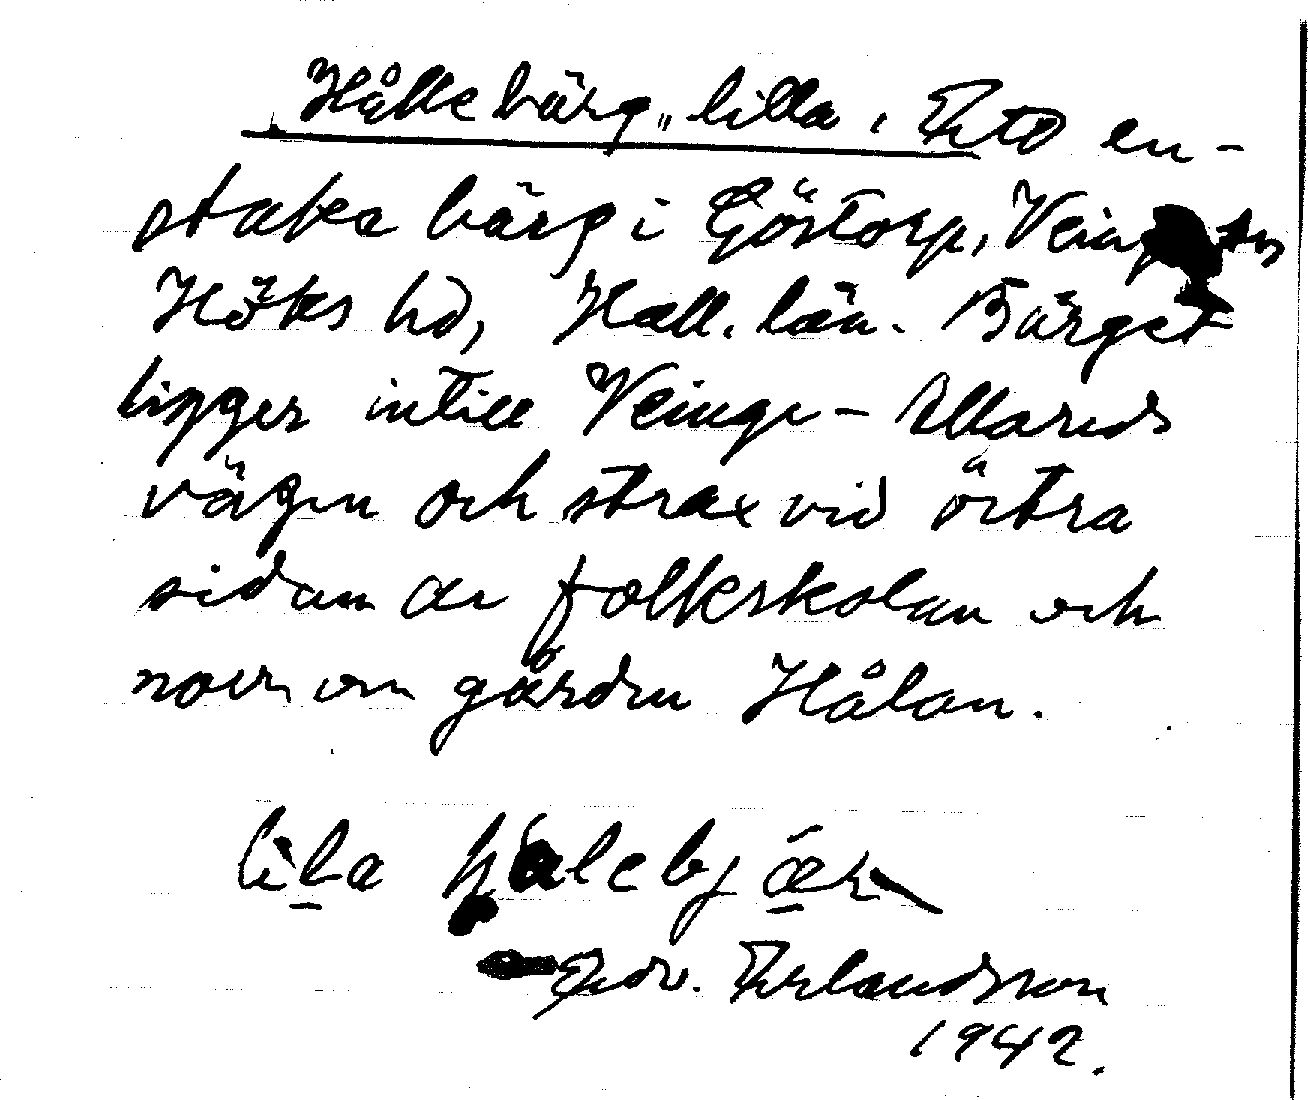 „Hållebärg„ lilla, Ett en-
staka bärg i Göstorp, Veinge sn
Höks hd, Hall. län. Bärget
ligger intill Veinge – Allareds
vägen och strax vid östra
sidan av folkskolan och
norr om gården Hålan.
lila hålebjär
Edv. Erlandsson
1942.